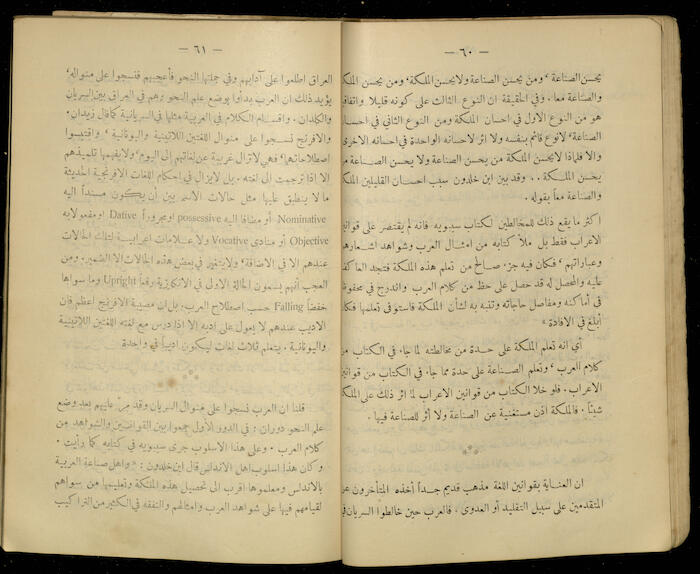 — ٦٠ —
يحسن الصناعة ، ومن يحسن الصناعة ولا يحسن الملكة، ومن يحسن الملكة
والصناعة معاً . وفي الحقيقة ان النوع الثالث على كونه قليلا واتفاقا
هو من النوع الاول في احسان الملكة ومن النوع الثاني في احسان
الصناعة، لا نوع قائم بنفسه ولا اثر لاحسانه الواحدة في احسانه الاخرى
والا فلماذا لا يحسن الملكة من يحسن الصناعة ولا يحسن الصناعة من
يحسن الملكة . . وقد بين ابن خلدون سبب احسان القليلين الملكة
والصناعة معاً بقوله .
اكثر ما يقع ذلك للمخالطين لكتاب سيبويه فانه لم يقتصر على قوانين
الاعراب فقط بل ملأ كتابه من امثال العرب وشواهد اشعارهم
وعباراتهم ، فكان فيه جزء صالح من تعلم هذه الملكة فتجد العاكف
عليه والمحصل له قد حصل على حظ من كلام العرب واندرج في محفوظه
في اماكنه ومفاصل حاجاته وتنبه به لشأن الملكة فاستوفى تعلمها فكان
أبلغ في الافادة »
أي انه تعلم الملكة على حدة من مخالطته لما جاء في الكتاب من
كلام العرب ، وتعلم الصناعة على حدة مما جاء في الكتاب من قوانين
الاعراب . فلو خلا الكتاب من قوانين الاعراب لما اثر ذلك على الملكة
شيئاً . فالملكة اذن مستغنية عن الصناعة ولا أثر للصناعة فيها .
ان العناية بقوانين اللغة مذهب قديم جداً أخذه المتأخرون عن
المتقدمين على سبيل التقليد أو العدوى . فالعرب حين خالطوا السريان في
— ٦١ —
العراق اطلعوا على آدابهم وفي جملتها النحو فأعجبهم فنسجوا على منواله،
يؤيد ذلك ان العرب بدأوا بوضع علم النحو وهم في العراق بين السريان
والكلدان . واقسام الكلام في العربية مثلها في السريانية كما قال زيدان .
والافرنج نسجوا على منوال اللغتين اللاتينية واليونانية ، واقتبسوا
اصطلاحاتهما، فهي لا تزال غريبة عن لغاتهم إلى اليوم، ولا يفهمها تلميذهم
إلا إذا ترجمت إلى لغته . بل لا يزال في احكام اللغات الافرنجية الحديثة
ما لا ينطبق عليها مثل حالات الاسم بين أن يكون مسنداً اليه
Nominative أو مضافا اليه possessive او مجروراً Dative او مفعولا به
Objective أو منادى Vocative ولا علامات اعرابية لتلك الحالات
عندهم إلا في الاضافة، ولا يتغير في بعض هذه الحالات الا الضمير . ومن
العجب أنهم يسمون الحالة الاولى في الانكليزية رفعاً Upright وما سواها
خفضاً Falling حسب اصطلاح العرب، بل ان مصيبة الافرنج اعظم فان
الاديب عندهم لا يعول على ادبه إلا إذا درس مع لغته اللغتين اللاتينية
واليونانية . يتعلم ثلاث لغات ليكون اديباً في واحدة
قلنا ان العرب نسجوا على منوال السريان وقد مر عليهم بعد وضع
علم النحو دوران : في الدور الاول جمعوا بين القوانين والشواهد من
كلام العرب . وعلى هذا الاسلوب جرى سيبويه في كتابه كما رأيت .
وكان هذا اسلوب اهل الاندلس قال ابن خلدون : « واهل صناعة العربية
بالاندلس ومعلموها اقرب الى تحصيل هذه الملكة وتعليمها من سواهم
لقيامهم فيها على شواهد العرب وامثالهم والتفقه في الكثير من التراكيب